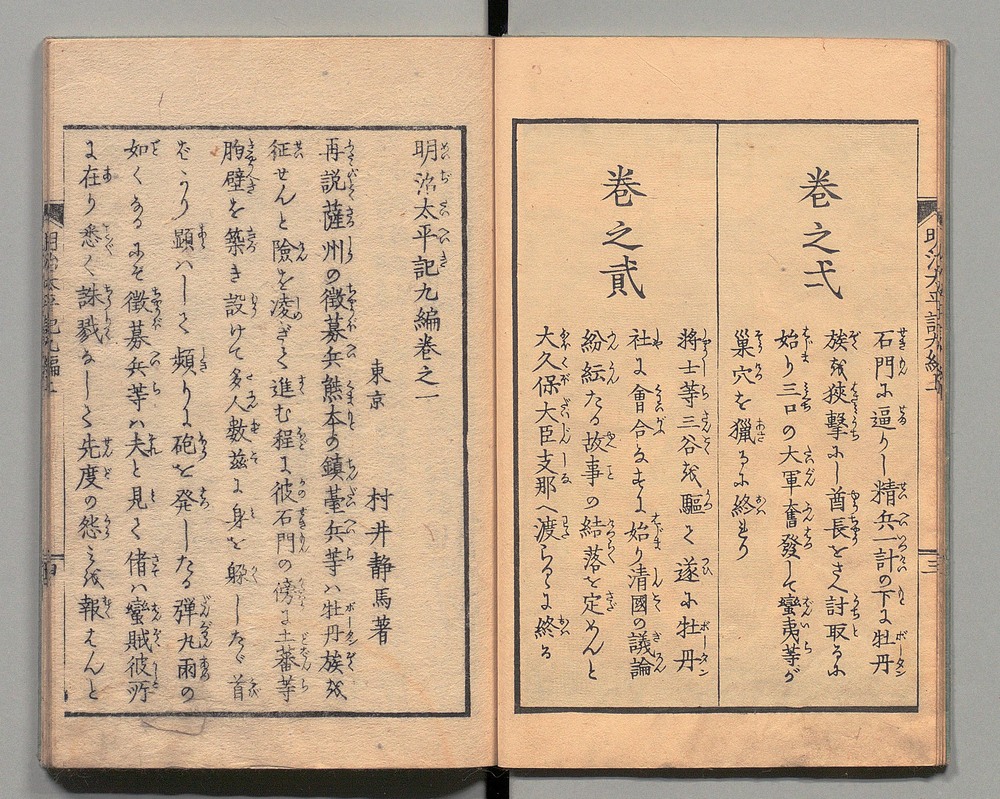 巻之弌
石門に逼りし精兵一計の下に牡丹
族を狭撃にし酋長をさへ討取るに
始り三口の大軍奮發して蠻夷等が
巣穴を獵るに終れり
巻之貳
将士等三谷を驅て遂に牡丹
社に會合なすに始り清國の議論
紛紜たる故事の結落を定めんと
大久保大臣支那へ渡らるゝに終る
明治太平記九編巻之一
東京
村井静馬著
再説薩州の徴募兵熊本の鎮䑓兵等ハ牡丹族を
征せんと險を凌ぎて進む程に彼石門の傍に土蕃等
胸壁を築き設けて多人數茲に身を躱したゞ首
ばかり顕ハして頻りに砲を発したる弾丸雨の
如くなるにぞ徴募兵等ハ夫と見て偖ハ蠻賊彼所
に在り悉く誅戮なして先度の怨みを報はんと